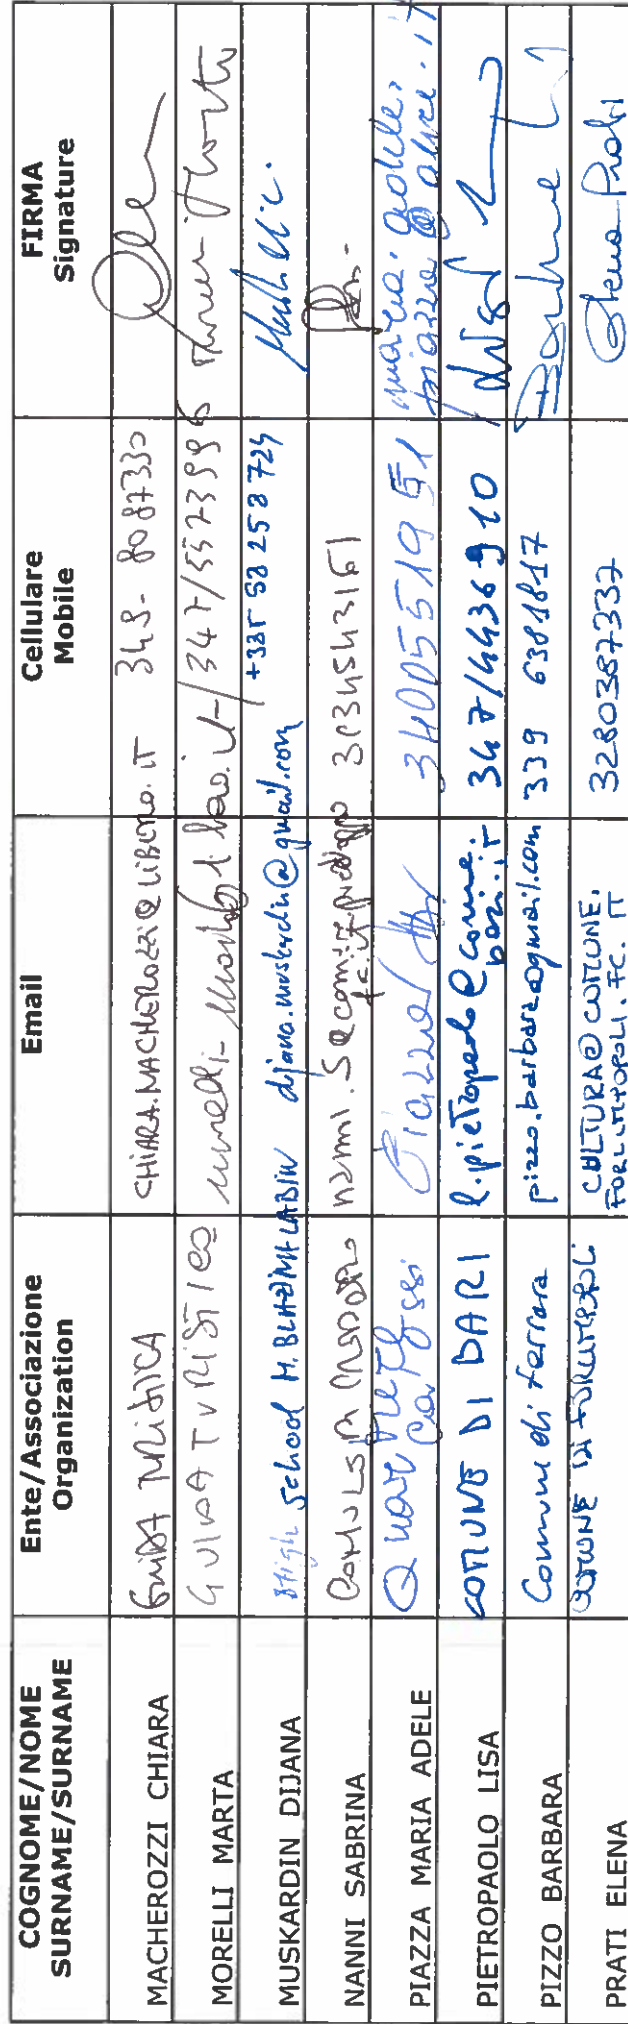 COGNOME/NOME
SURNAME/SURNAME
Ente/Associazione
Organization
Email
Cellulare
Mobile
FIRMA
Signature
MACHEROZZI CHIARA
GUIDA TURISTICA
CHIARA.MACHEROZZI@LIBERO.IT
349-8087330
MORELLI MARTA
GUIDA TURISTICA
347/5523996
MUSKARDIN DIJANA
High School M. BLAŽINA LABIN
dijana.muskardin@gmail.com
NANNI SABRINA
nanni.s@comune.
PIAZZA MARIA ADELE
Piazza
3400551951
maria.adele.
piazza@alice.it
PIETROPAOLO LISA
COMUNE DI BARI
l.pietropaolo@comune.
bari.it
347/4436910
PIZZO BARBARA
Comune di Ferrara
pizzo.barbara@gmail.com
339 6381817
Barbara
PRATI ELENA
COMUNE DI FORLIMPOPOLI
CULTURA@COMUNE.
FORLIMPOPOLI.FC.IT
3280387337
Elena Prati